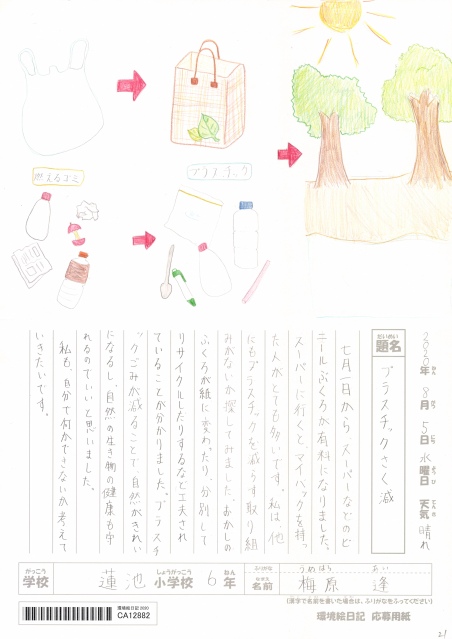 燃えるゴミ
プラスチック
2020年 8月 5日 水曜日 天気 晴れ
だいめい
題名 プラスチックさく減
七月一日から、スーパーなどのビ
ニールぶくろが有料になりました。
スーパーに行くと、マイバックを持っ
た人がとても多いです。私は、他
にもプラスチックを減らす取り組
みがないか探してみました。おかしの
ふくろが紙に変わったり、分別して
リサイクルしたりするなど工夫され
ていることが分かりました。プラスチ
ックごみが減ることで、自然がきれい
になるし、自然の生き物の健康も守
れるのでいいと思いました。
私も、自分で何かできないか考えて
いきたいです。
がっこう しょうがっこう ねん
学校 蓮池小学校 6年
ふりがな うめはら あい
名前 梅原 逢
(漢字で名前を書いた場合は、ふりがなをふってください)
環境絵日記 2020
CA12882
環境絵日記 応募用紙
21